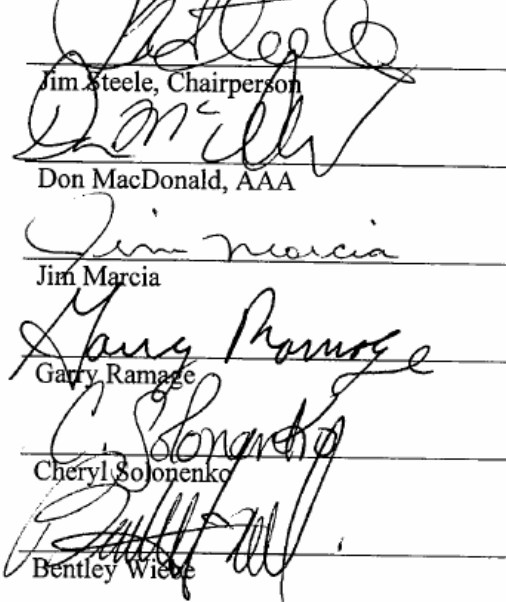 Steele
Jim Steele, Chairperson
Don MacDonald, AAA
Jim Marcia
Jim Marcia
Garry Ramage
Garry Ramage
C. Solonenko
Cheryl Solonenko
Bentley Wiebe